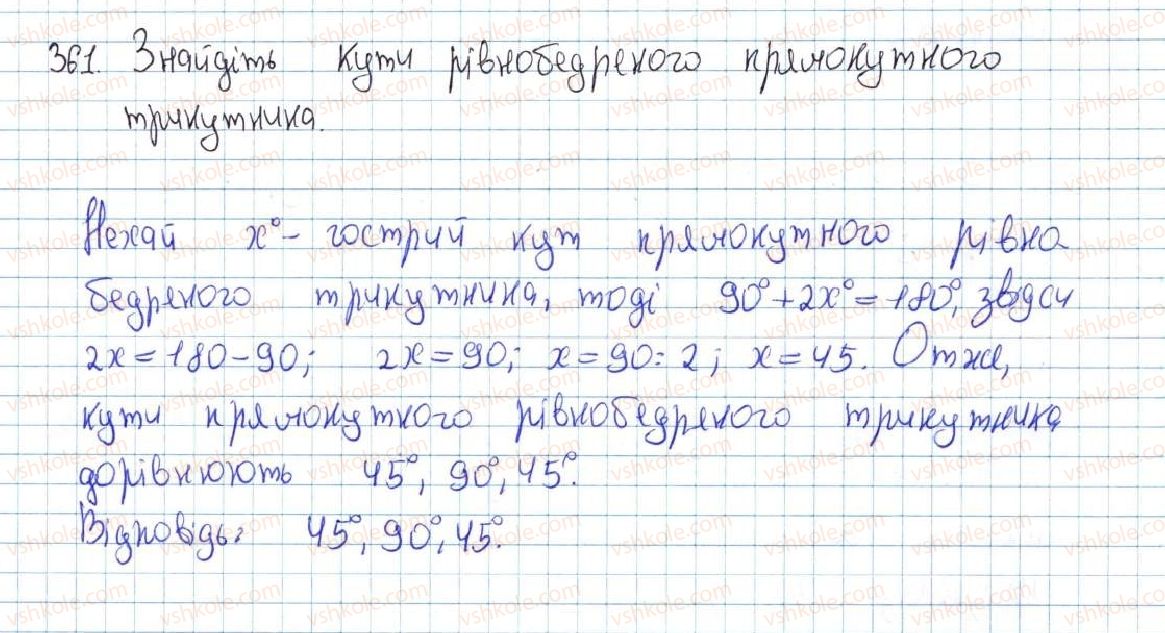 361. Знайдіть кути рівнобедреного прямокутного
трикутника.
Нехай x° - гострий кут прямокутного рівно
бедреного трикутника, тоді 90° + 2x° = 180°, звідси
2x = 180 - 90; 2x = 90; x = 90 : 2; x = 45. Отже,
кути прямокутного рівнобедреного трикутника
дорівнюють 45°, 90°, 45°.
Відповідь: 45°, 90°, 45°.